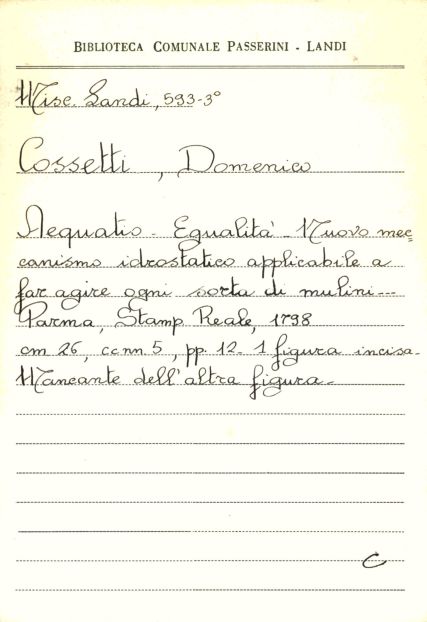 BIBLIOTECA COMUNALE PASSERINI - LANDI
Misc. Landi, 593-3°
Cossetti, Domenico
Aequatio - Egualità - Nuovo mec=
canismo idrostatico applicabile a
far agire ogni sorta di mulini---
Parma, Stamp Reale, 1798
cm 26, cc nn. 5, pp. 12. 1 figura incisa.
Mancante dell'altra figura.
C